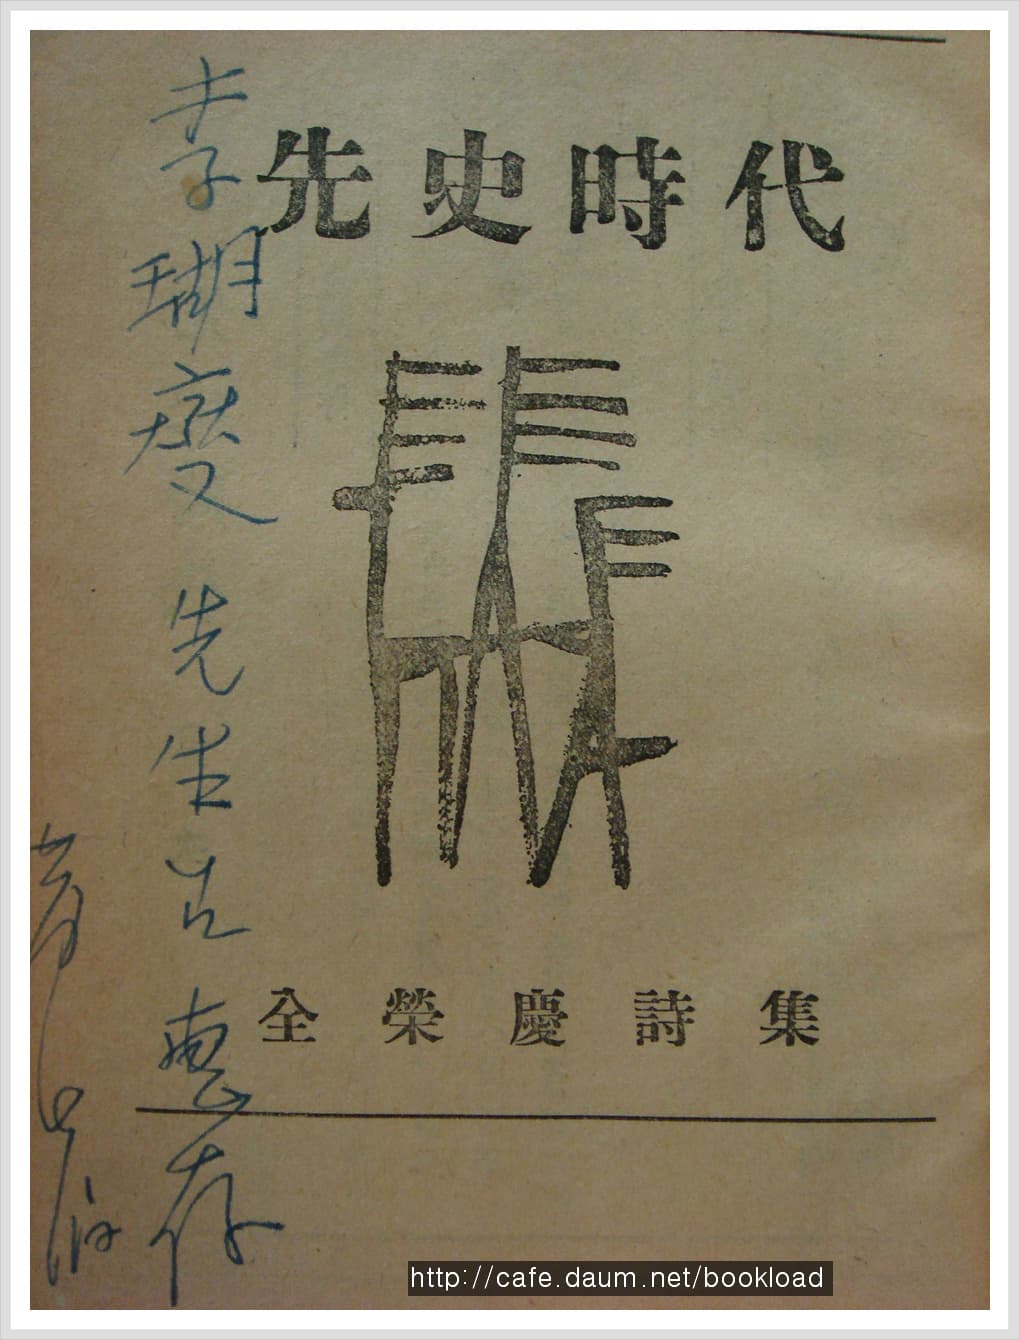 先史時代
全榮慶詩集
李瑚燮先生 惠存
http://cafe.daum.net/bookload